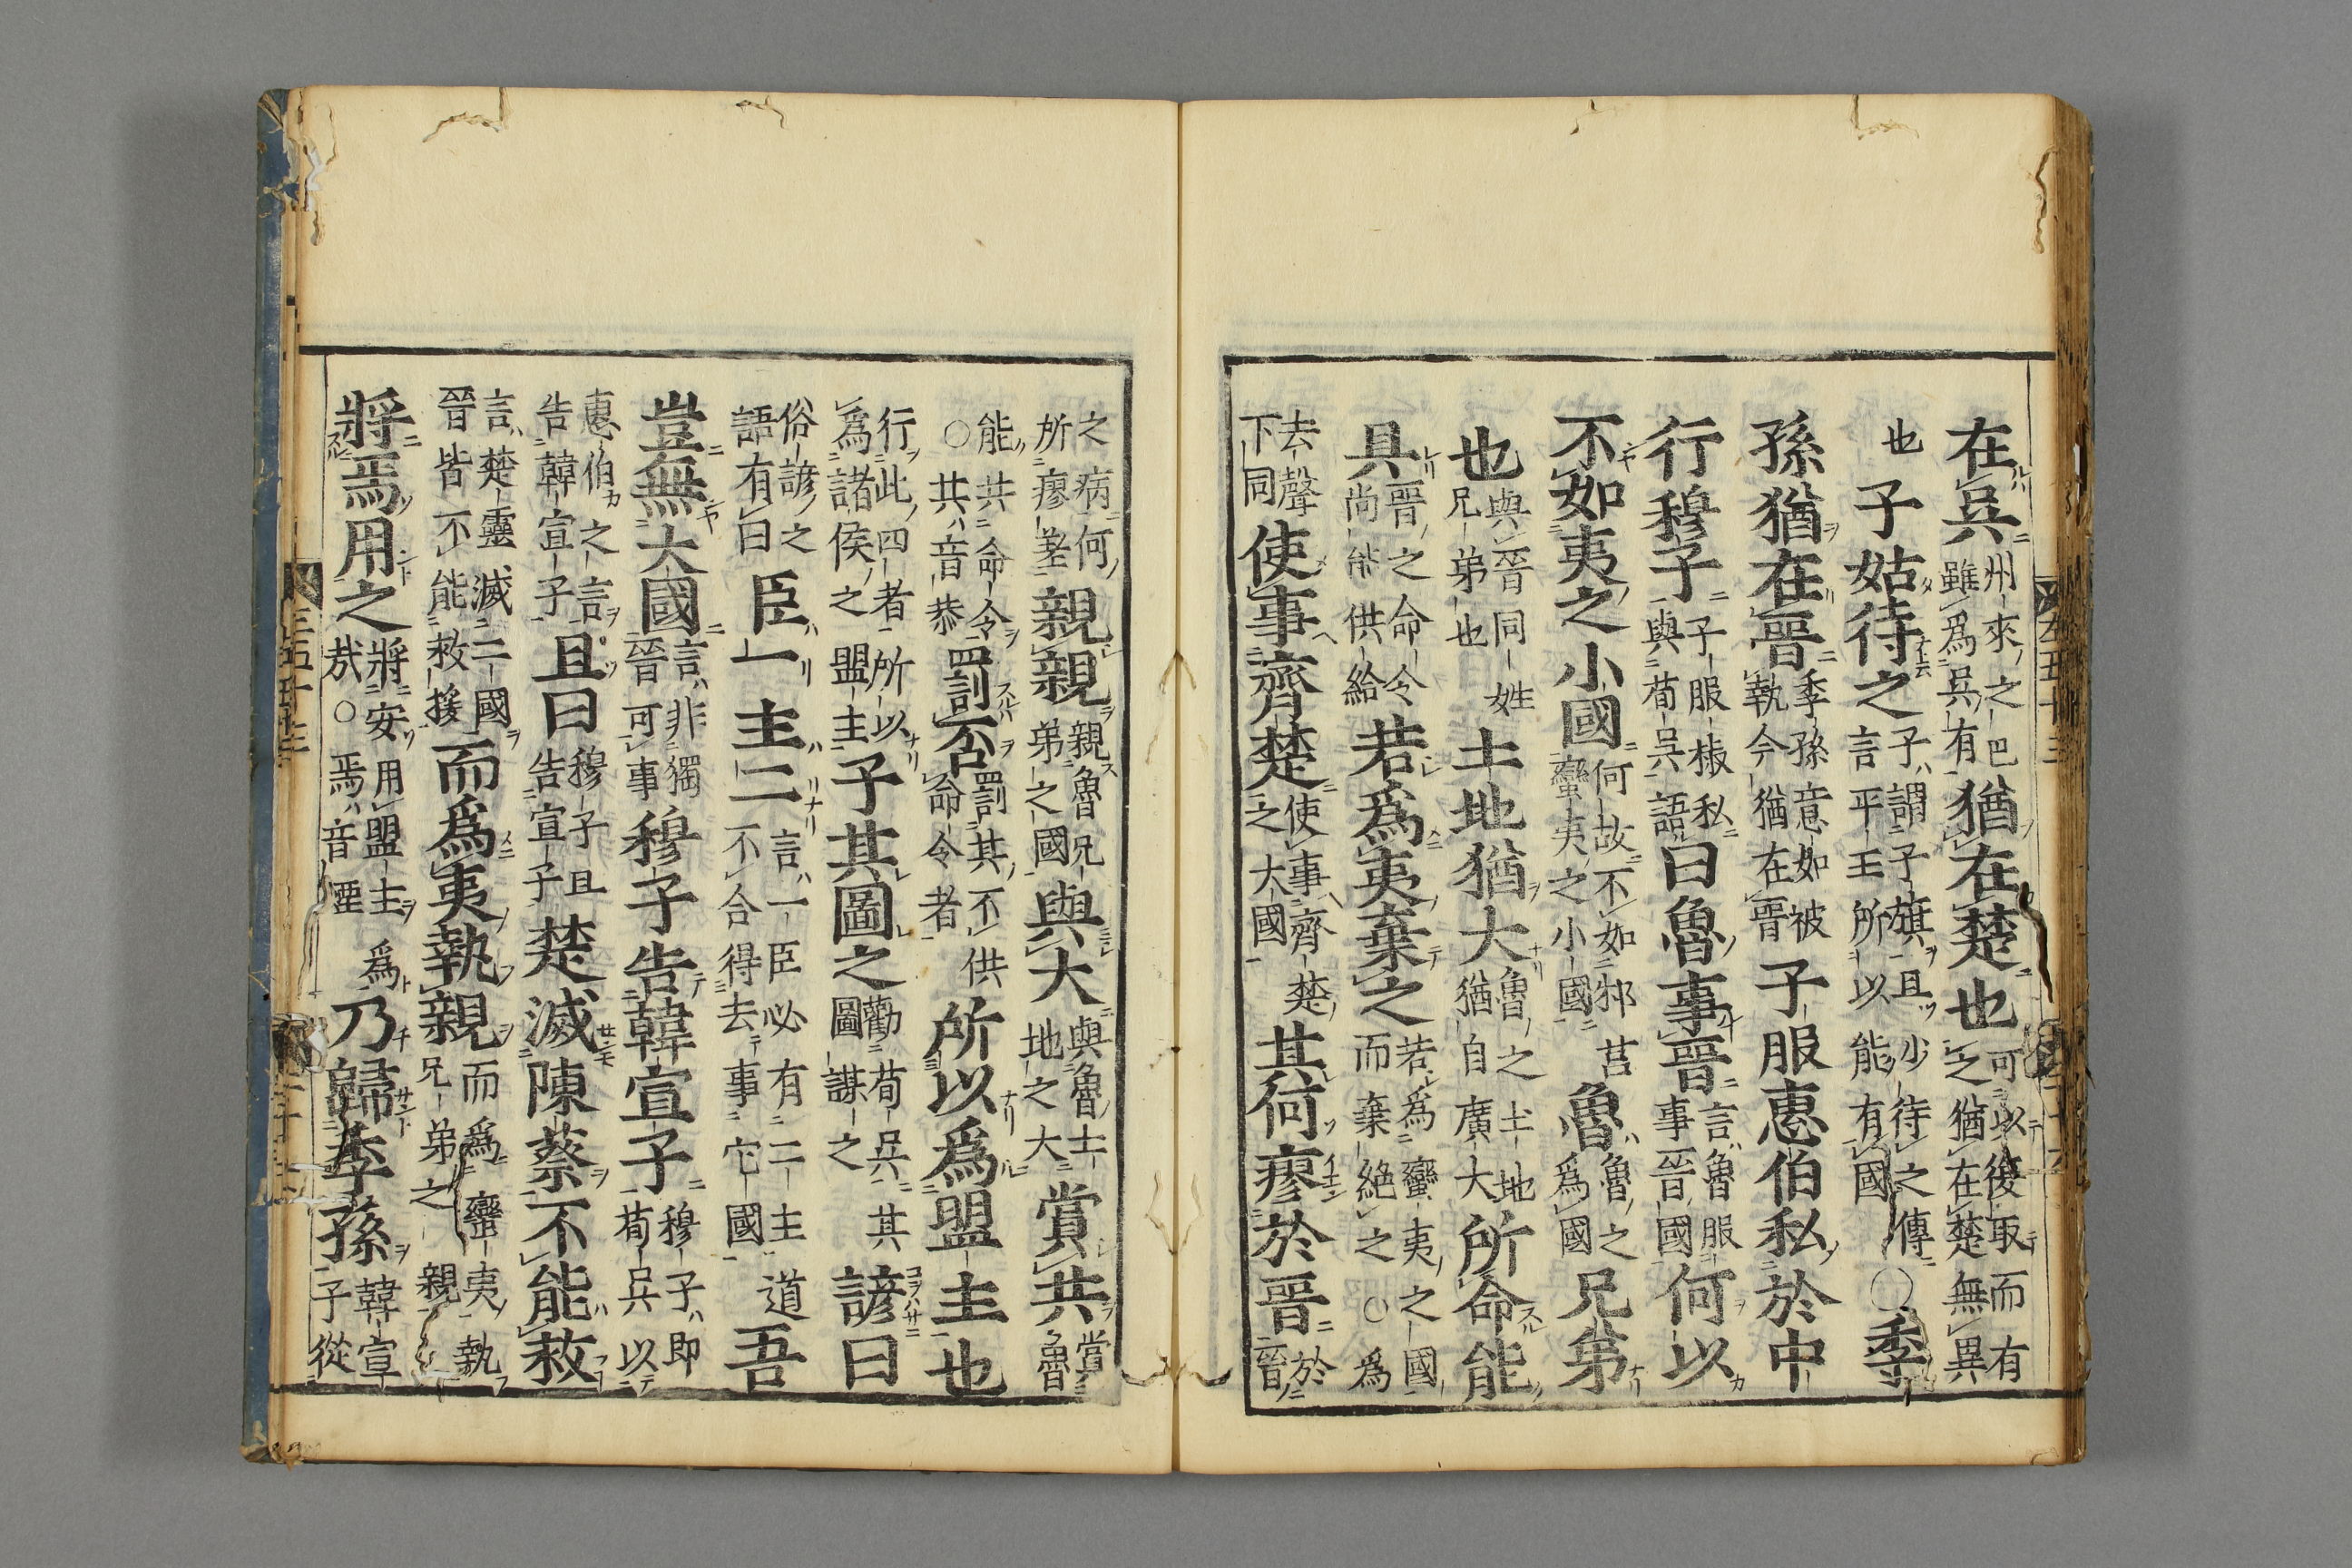 在吳州來之巴雖爲吳有猶在楚也可以復取而有之猶在楚無異
也子姑待之子謂子旗且少待之言平王所以能有國傳○季
孫猶在晉季孫意如被執今猶在晉子服惠伯私於中
行穆子子服椒私與荀吳語曰魯事晉言魯服事晉國何以
不如夷之小國何故不如邾莒蠻夷之小國魯魯之爲國兄弟
也與晉同姓兄弟也土地猶大魯之土地猶自廣大所命能
具晉之命令尚能供給若爲夷棄之若爲蠻夷之國而棄絶之○爲
去聲下同使事齊楚使事齊楚之大國其何瘳於晉於晉
之病何所瘳差親親親魯兄弟之國與大與魯土地之大賞共賞魯
能共命令○共音恭罰否罰其不供命令者所以爲盟主也
行此四者所以爲諸侯之盟主子其圖之勸荀吳其圖謀之諺曰
俗諺之語有曰臣一主二言一臣必有二主不合得去事它國道吾
豈無大國言非獨晉可事穆子告韓宣子穆子即荀吳以
惠伯之言告韓宣子且曰穆子且告宣子楚滅陳蔡不能救
言楚靈滅二國晉皆不能救援而爲夷執親而爲蠻夷執兄弟之親
將焉用之將安用盟主爲哉○焉音煙乃歸季孫韓宣子從